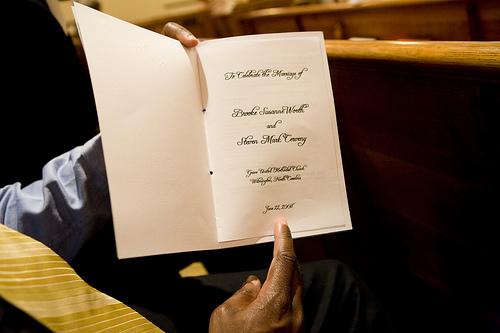 To Celebrate the Marriage of
Brooke Susanne Worth
and
Steven Mark
Grace United Methodist Church
Wilmington, North Carolina
June